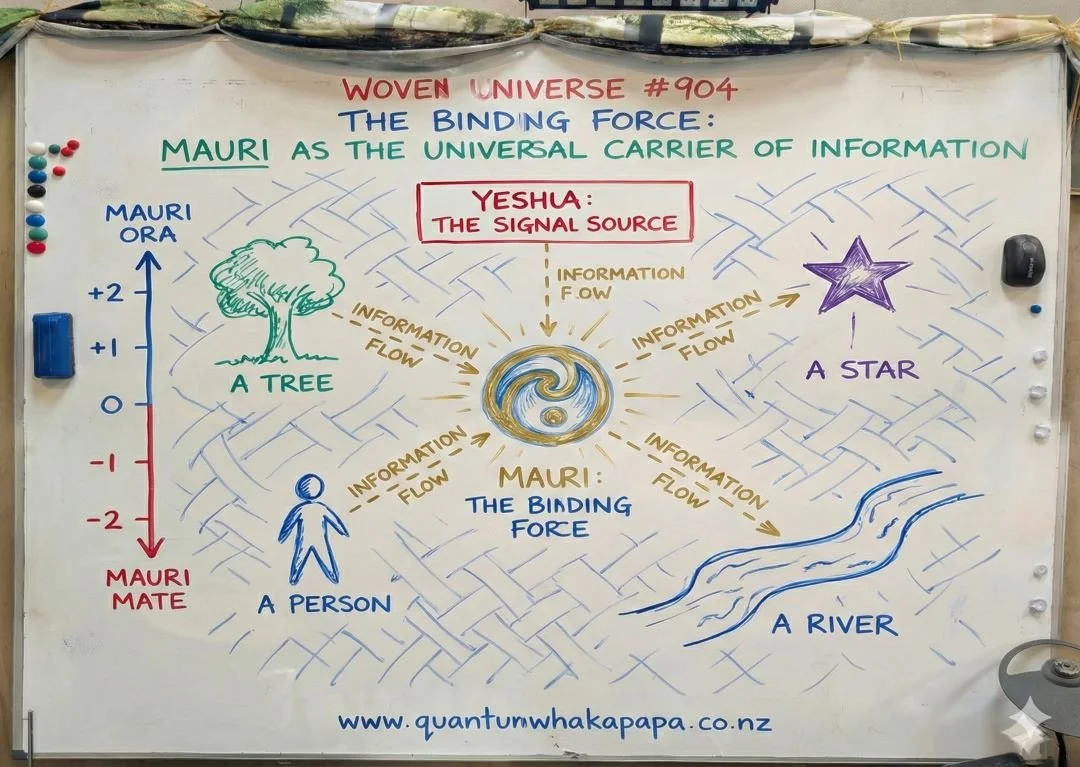 WOVEN UNIVERSE #904
THE BINDING FORCE:
MAURI AS THE UNIVERSAL CARRIER OF INFORMATION
YESHUA:
THE SIGNAL SOURCE
MAURI
ORA
+2
+1
0
-1
-2
MAURI
MATE
INFORMATION
F OW
A TREE
INFORMATION
FLOW
INFORMATION
FLOW
A STAR
INFORMATION
FLOW
A PERSON
MAURI:
THE BINDING
FORCE
INFORMATION
FLOW
A RIVER
www.quantumwhakapapa.co.nz